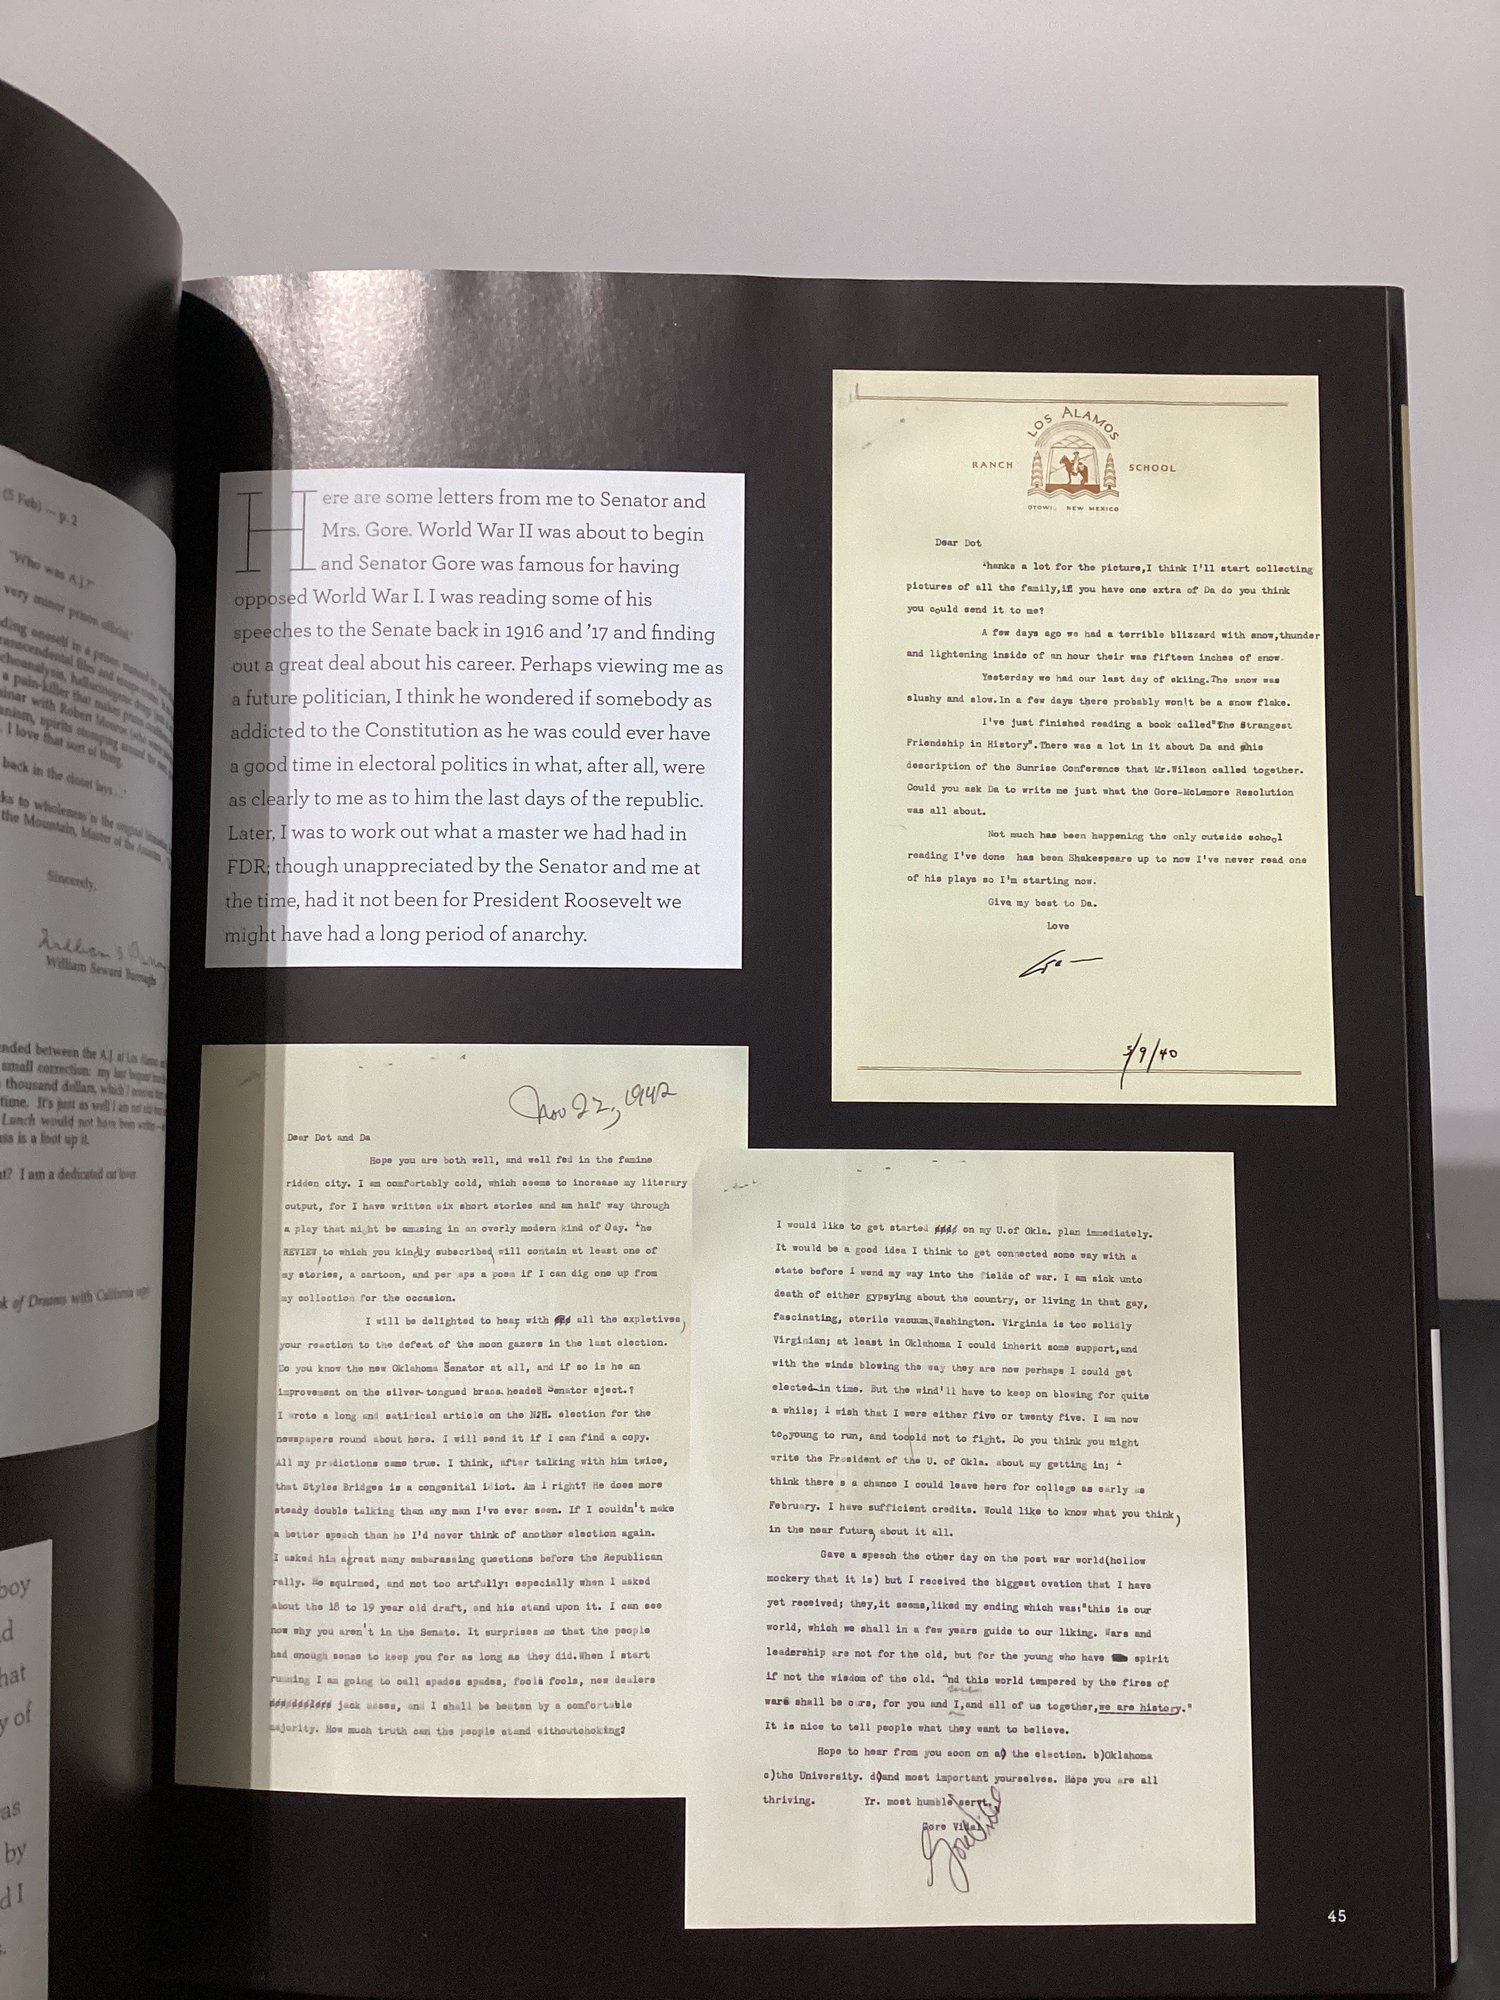 (5 Feb) — p. 2
"Who was A.J.?"
very minor prison official.'
I love that sort of thing.
back in the closet lays...'
ks to wholeness is the original
the Mountain, Master of the
Sincerely,
William Seward Burroughs
nded between the A.J. at Los Alamos
small correction: my last
thousand dollars, which I
time. It's just as well I am not
Lunch would not have been
ss is a foot up it.
t? I am a dedicated cat lover
k of Dreams with
boy
d
hat
y of
as
by
d I
Here are some letters from me to Senator and
Mrs. Gore. World War II was about to begin
and Senator Gore was famous for having
opposed World War I. I was reading some of his
speeches to the Senate back in 1916 and '17 and finding
out a great deal about his career. Perhaps viewing me as
a future politician, I think he wondered if somebody as
addicted to the Constitution as he was could ever have
a good time in electoral politics in what, after all, were
as clearly to me as to him the last days of the republic.
Later, I was to work out what a master we had had in
FDR; though unappreciated by the Senator and me at
the time, had it not been for President Roosevelt we
might have had a long period of anarchy.
LOS ALAMOS
RANCH SCHOOL
OTOWI, NEW MEXICO
Dear Dot
Thanks a lot for the picture,I think I'll start collecting
pictures of all the family,if you have one extra of Da do you think
you could send it to me?
A few days ago we had a terrible blizzard with snow,thunder
and lightening inside of an hour their was fifteen inches of snow.
Yesterday we had our last day of skiing.The snow was
slushy and slow.In a few days there probably won't be a snow flake.
I've just finished reading a book called"The Strangest
Friendship in History".There was a lot in it about Da and his
description of the Sunrise Conference that Mr.Wilson called together.
Could you ask Da to write me just what the Gore-McLemore Resolution
was all about.
Not much has been happening the only outside school
reading I've done has been Shakespeare up to now I've never read one
of his plays so I'm starting now.
Give my best to Da.
Love
/9/40
Nov 22, 1942
Dear Dot and Da
Hope you are both well, and well fed in the famine
ridden city. I am comfortably cold, which seems to increase my literary
output, for I have written six short stories and am half way through
a play that might be amusing in an overly modern kind of day. The
REVIEW, to which you kindly subscribed, will contain at least one of
my stories, a cartoon, and per aps a poem if I can dig one up from
my collection for the occasion.
I will be delighted to hear, with all the expletives,
your reaction to the defeat of the moon gazers in the last election.
Do you know the new Oklahoma Senator at all, and if so is he an
improvement on the silver-tongued brass headed Senator eject.?
I wrote a long and satirical article on the N.H. election for the
newspapers round about here. I will send it if I can find a copy.
All my predictions came true. I think, after talking with him twice,
that Styles Bridges is a congenital idiot. Am I right? He does more
steady double talking than any man I've ever seen. If I couldn't make
a better speech than he I'd never think of another election again.
I asked him agreat many embarassing questions before the Republican
rally. He squirmed, and not too artfully; especially when I asked
about the 18 to 19 year old draft, and his stand upon it. I can see
now why you aren't in the Senate. It surprises me that the people
had enough sense to keep you for as long as they did.When I start
running I am going to call spades spades, fools fools, new dealers
jack asses, and I shall be beaten by a comfortable
majority. How much truth can the people stand withoutchoking?
I would like to get started on my U.of Okla. plan immediately.
It would be a good idea I think to get connected some way with a
state before I wend my way into the fields of war. I am sick unto
death of either gypsying about the country, or living in that gay,
fascinating, sterile vacuum, Washington. Virginia is too solidly
Virginian; at least in Oklahoma I could inherit some support,and
with the winds blowing the way they are now perhaps I could get
elected in time. But the wind'll have to keep on blowing for quite
a while; I wish that I were either five or twenty five. I am now
too young to run, and too old not to fight. Do you think you might
write the President of the U. of Okla. about my getting in; I
think there s a chance I could leave here for college as early as
February. I have sufficient credits. Would like to know what you think,
in the near future, about it all.
Gave a speech the other day on the post war world(hollow
mockery that it is) but I received the biggest ovation that I have
yet received; they,it seems,liked my ending which was:"this is our
world, which we shall in a few years guide to our liking. Wars and
leadership are not for the old, but for the young who have spirit
if not the wisdom of the old. And this world tempered by the fires of
wars shall be ours, for you and I,and all of us together,we are history."
It is nice to tell people what they want to believe.
Hope to hear from you soon on a) the election. b)Oklahoma
c)the University. d)and most important yourselves. Hope you are all
thriving. Yr. most humble servt.
Gore Vidal
Gore Vidal
45